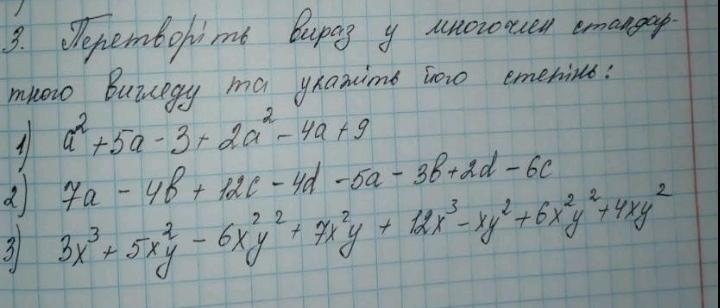 3. Перетворіть вираз у многочлен стандар-
тного вигляду та укажіть його степінь:
1) a² + 5a - 3 + 2a² - 4a + 9
2) 7a - 4b + 12c - 4d - 5a - 3b + 2d - 6c
3) 3x³ + 5xy² - 6x²y² + 7x²y + 12x³ - xy² + 6x²y² + 4xy²